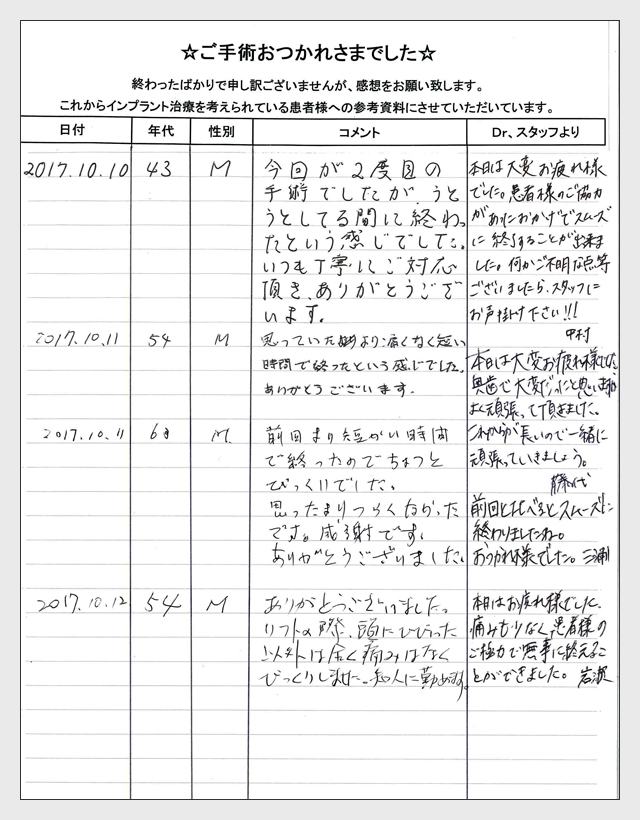 ☆ご手術おつかれさまでした☆
終わったばかりで申し訳ございませんが、感想をお願い致します。
これからインプラント治療を考えられている患者様への参考資料にさせていただいています。
日付 年代 性別 コメント Dr、スタッフより
2017.10.10 43 M
今回が2度目の
手術でしたが、うと
うとしてる間に終わっ
たという感じでした。
いつも丁寧にご対応
頂き、ありがとうござ
います。
本日は大変お疲れ様
でした。患者様のご協力
がありおかげでスムーズ
に終了することが出来ま
した。何かご不明な点等
ございましたら、スタッフに
お声掛け下さい!!!
中村
2017.10.11 54 M
思っていた時より痛くなく短い
時間で終ったという感じでした。
ありがとうございます。
本日は大変お疲れ様でした。
奥歯で大変だったと思いますが
よく頑張って頂きました。
これからが長いので一緒に
頑張っていきましょう。
藤代
2017.10.11 68 M
前回より短かい時間
で終ったのでちょっと
びっくりでした。
思ったよりつらくなかった
です。感謝です。
ありがとうございました。
前回と比べるとスムーズに
終わりましたね。
おつかれ様でした。三浦
2017.10.12 54 M
ありがとうございました。
リフトの際、頭にひびいった
以外は全く痛みはなく
びっくりしました。知人に勧めます。
本日はお疲れ様でした、
痛みも少なく、患者様の
ご協力で無事に終えるこ
とができました。岩波